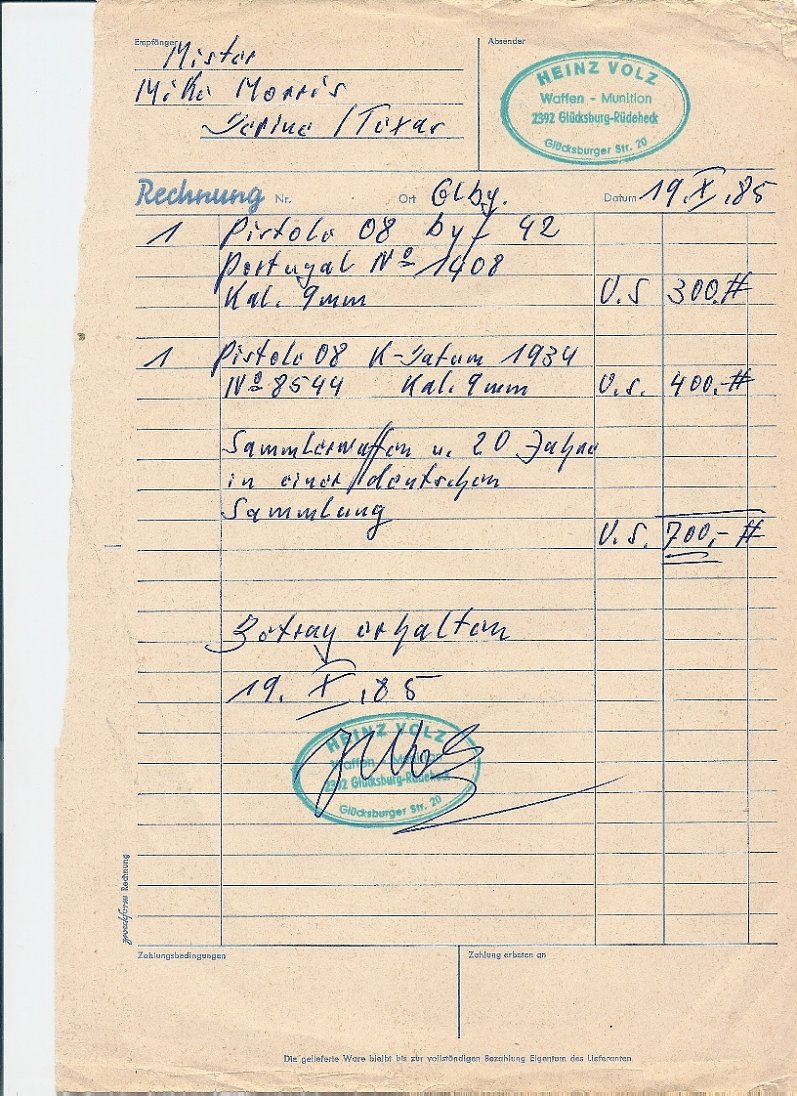 Empfänger
Mister
Mike Morris
Irving / Texas
Absender
HEINZ VOLZ
Waffen - Munition
2392 Glücksburg-Rüdeheck
Glücksburger Str. 20
Rechnung Nr. Ort Glbg. Datum 19.X.85
1 Pistole 08 byf 42
Portugal No 1408
Kal. 9mm U.S 300.#
1 Pistole 08 K-Datum 1934
No 8544 Kal. 9mm U.S. 400.-#
Sammlerwaffen u. 20 Jahre
in einer deutschen
Sammlung
U.S. 700,-#
Betrag erhalten
19. X .85
HEINZ VOLZ
Waffen - Munition
2392 Glücksburg-Rüdeheck
Glücksburger Str. 20
zweckform Rechnung
Zahlungsbedingungen
Zahlung erbeten an
Die gelieferte Ware bleibt bis zur vollständigen Bezahlung Eigentum des Lieferanten.